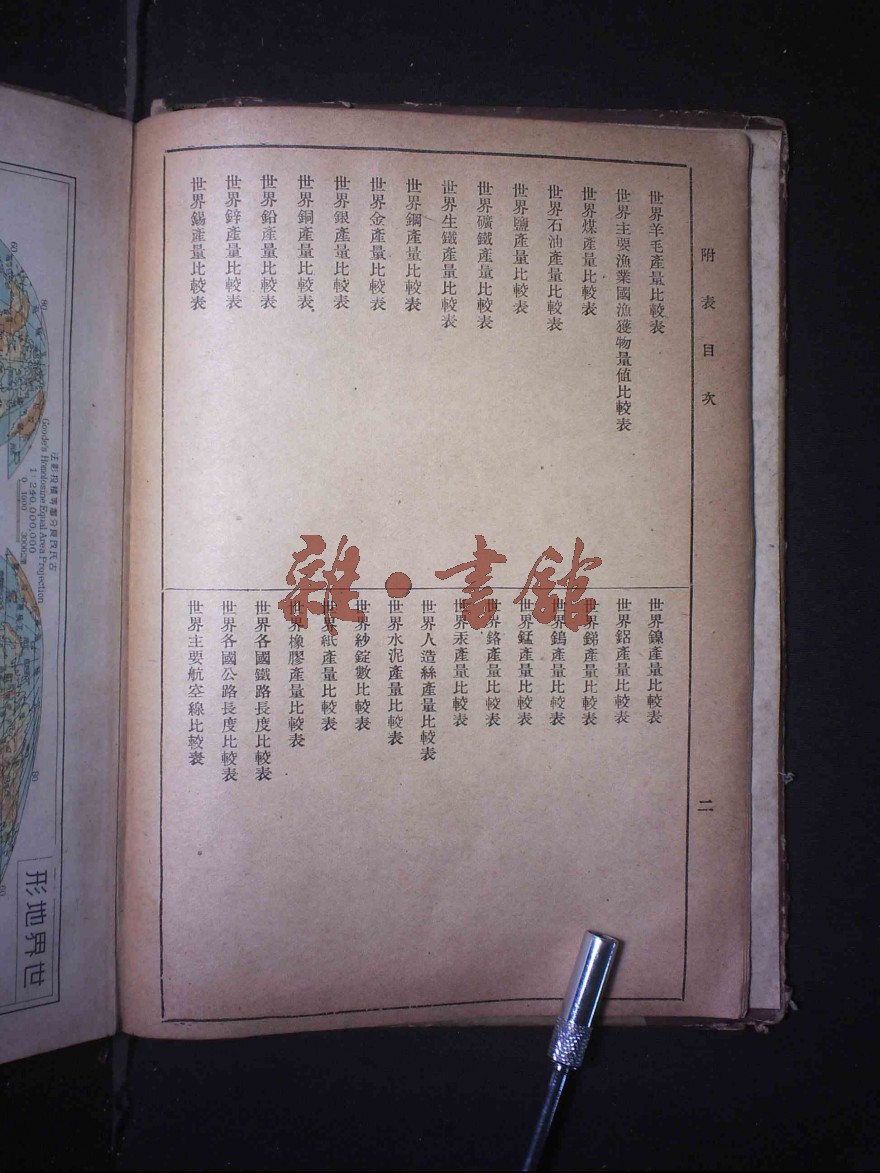 附表目次
世界羊毛產量比較表
世界主要漁業國漁獲物量値比較表
世界煤產量比較表
世界石油產量比較表
世界鹽產量比較表
世界礦鐵產量比較表
世界生鐵產量比較表
世界鋼產量比較表
世界金產量比較表
世界銀產量比較表
世界銅產量比較表
世界鉛產量比較表
世界鋅產量比較表
世界錫產量比較表
世界鎳產量比較表
世界鋁產量比較表
世界銻產量比較表
世界鎢產量比較表
世界錳產量比較表
世界鉻產量比較表
世界汞產量比較表
世界人造絲產量比較表
世界水泥產量比較表
世界紗錠數比較表
世界紙產量比較表
世界橡膠產量比較表
世界各國鐵路長度比較表
世界各國公路長度比較表
世界主要航空線比較表
二
雜·書館
Goode's Homolosine Equal Area Projection
1:240,000,000
世界地形